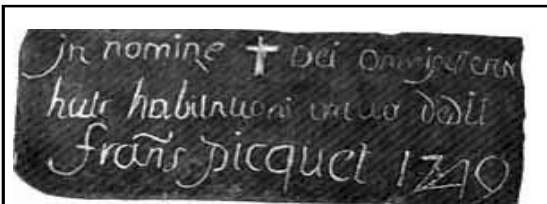 jn nomine ✝ Dei Omnipotentis
huic habitationi initia dedit
frañs picquet 1749